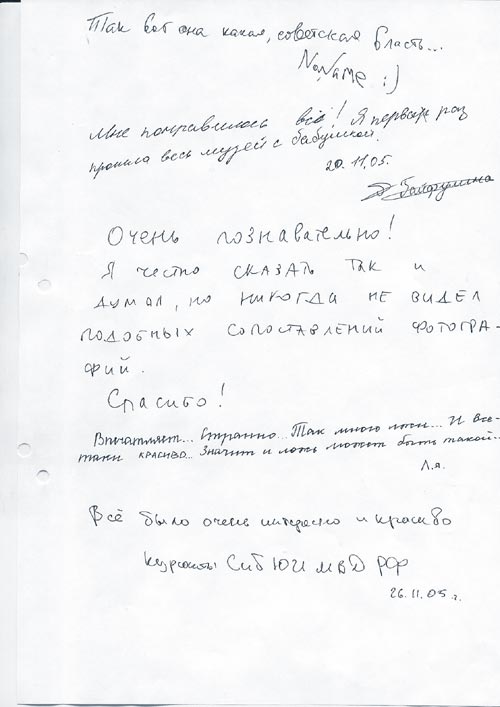 Так вот она какая, советская власть...
NoName :)
Мне понравилось всё! Я первый раз
прошла весь музей с бабушкой.
20.11.05.
Очень познавательно!
Я честно сказать так и
думал, но никогда не видел
подобных сопоставлений фотогра-
фий.
Спасибо!
Впечатляет... Странно... Так много лжи... И все-
таки красиво... Значит и ложь может быть такой...
Л.я.
Всё было очень интересно и красиво
курсанты СибЮИ МВД РФ
26.11.05 г.